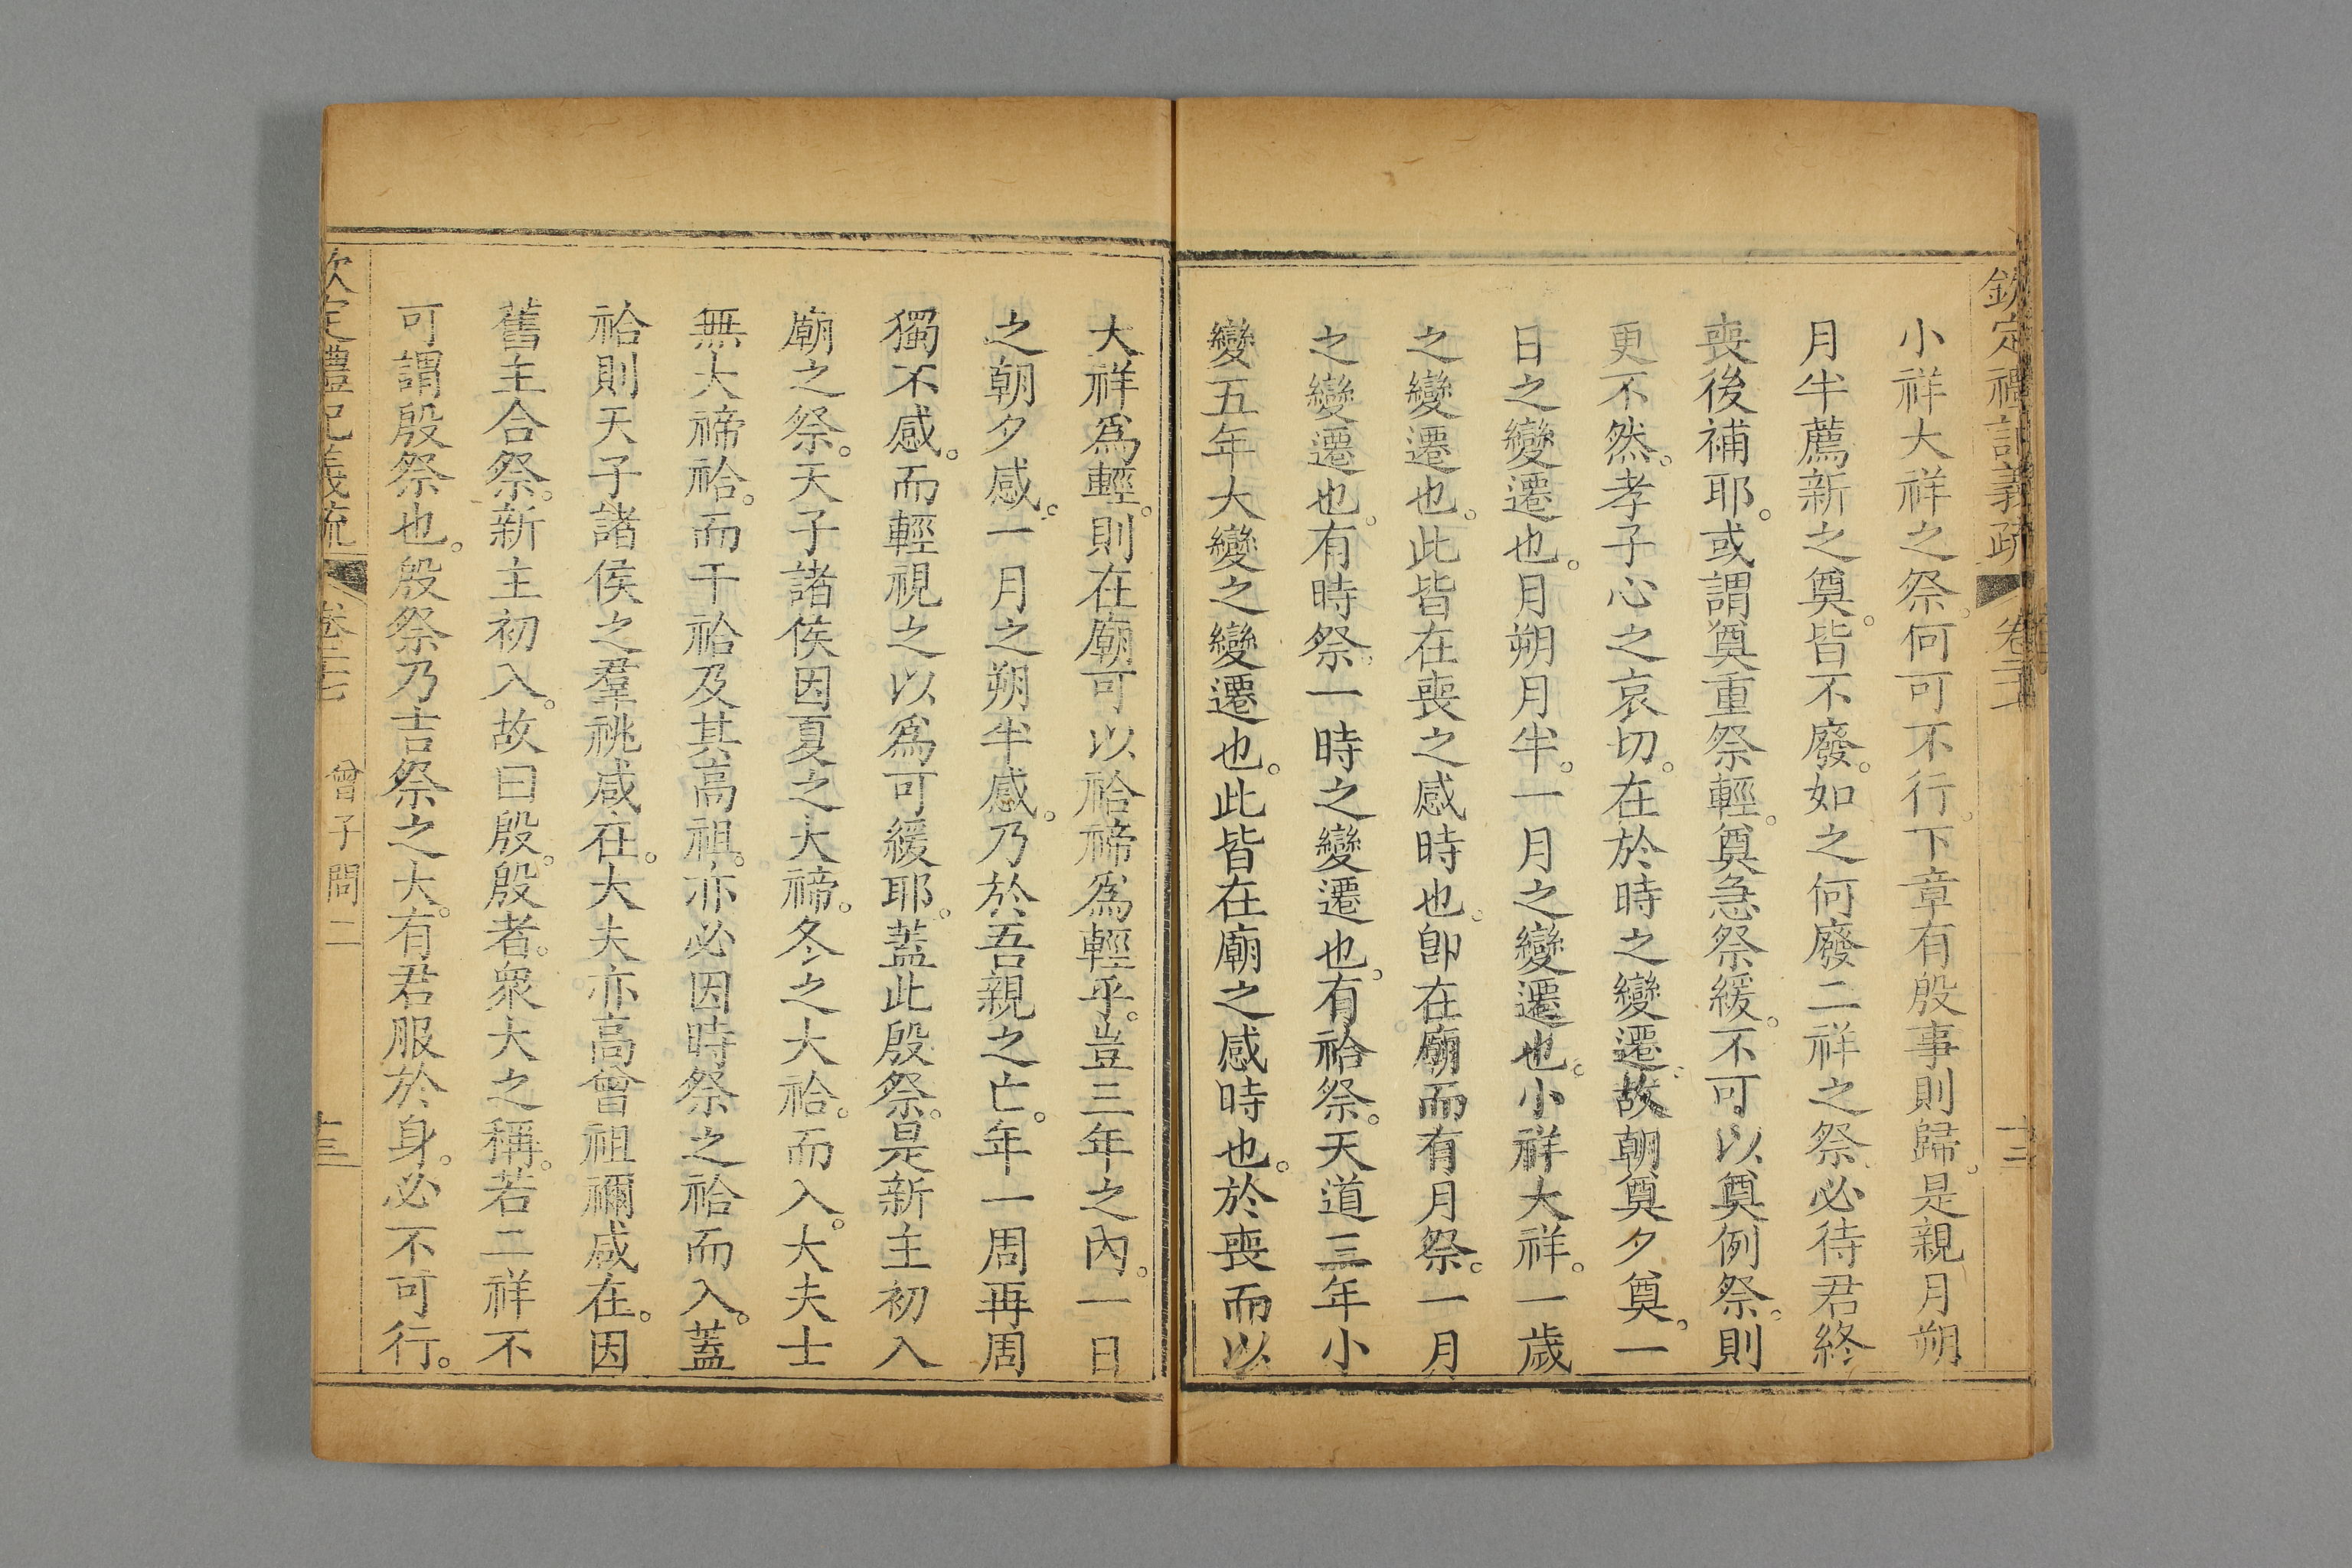 欽定禮記義疏 卷二十
小祥大祥之祭。何可不行。下章有殷事則歸。是親月朔
月半薦新之奠。皆不廢。如之何廢二祥之祭。必待君終
喪後補耶。或謂奠重祭輕。奠急祭緩。不可以奠例祭。則
更不然。孝子心之哀切。在於時之變遷。故朝奠夕奠。一
日之變遷也。月朔月半。一月之變遷也。小祥大祥。一歲
之變遷也。此皆在喪之感時也。卽在廟而有月祭。一月
之變遷也。有時祭。一時之變遷也。有祫祭。天道三年小
變五年大變之變遷也。此皆在廟之感時也。於喪而以
大祥爲輕。則在廟可以祫禘爲輕乎。豈三年之內。一日
之朝夕感。一月之朔半感。乃於吾親之亡。年一周再周
獨不感。而輕視之以爲可緩耶。蓋此殷祭。是新主初入
廟之祭。天子諸侯因夏之大禘。冬之大祫。而入。大夫士
無大禘祫。而干祫及其高祖。亦必因時祭之祫而入。蓋
祫則天子諸侯之羣祧咸在。大夫亦高曾祖禰咸在。因
舊主合祭。新主初入。故曰殷。殷者。衆大之稱。若二祥不
可謂殷祭也。殷祭乃吉祭之大。有君服於身。必不可行。
欽定禮記義疏 卷二十七 曾子問二 十三